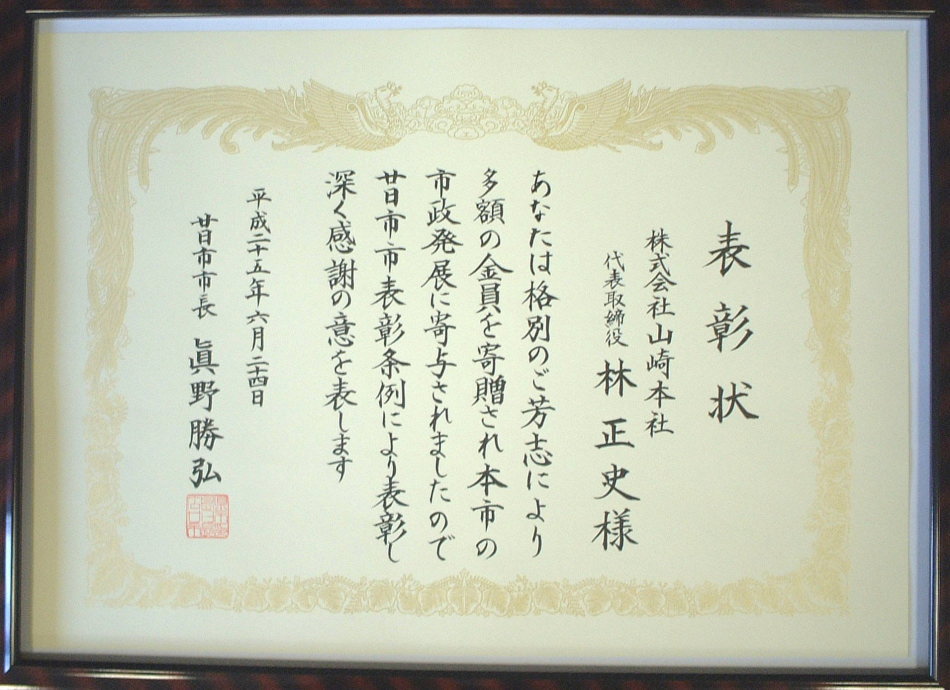 表彰状
株式会社山崎本社
代表取締役 林正史様
あなたは格別のご芳志により
多額の金員を寄贈され本市の
市政発展に寄与されましたので
廿日市市表彰条例により表彰し
深く感謝の意を表します
平成二十五年六月二十四日
廿日市市長 眞野勝弘